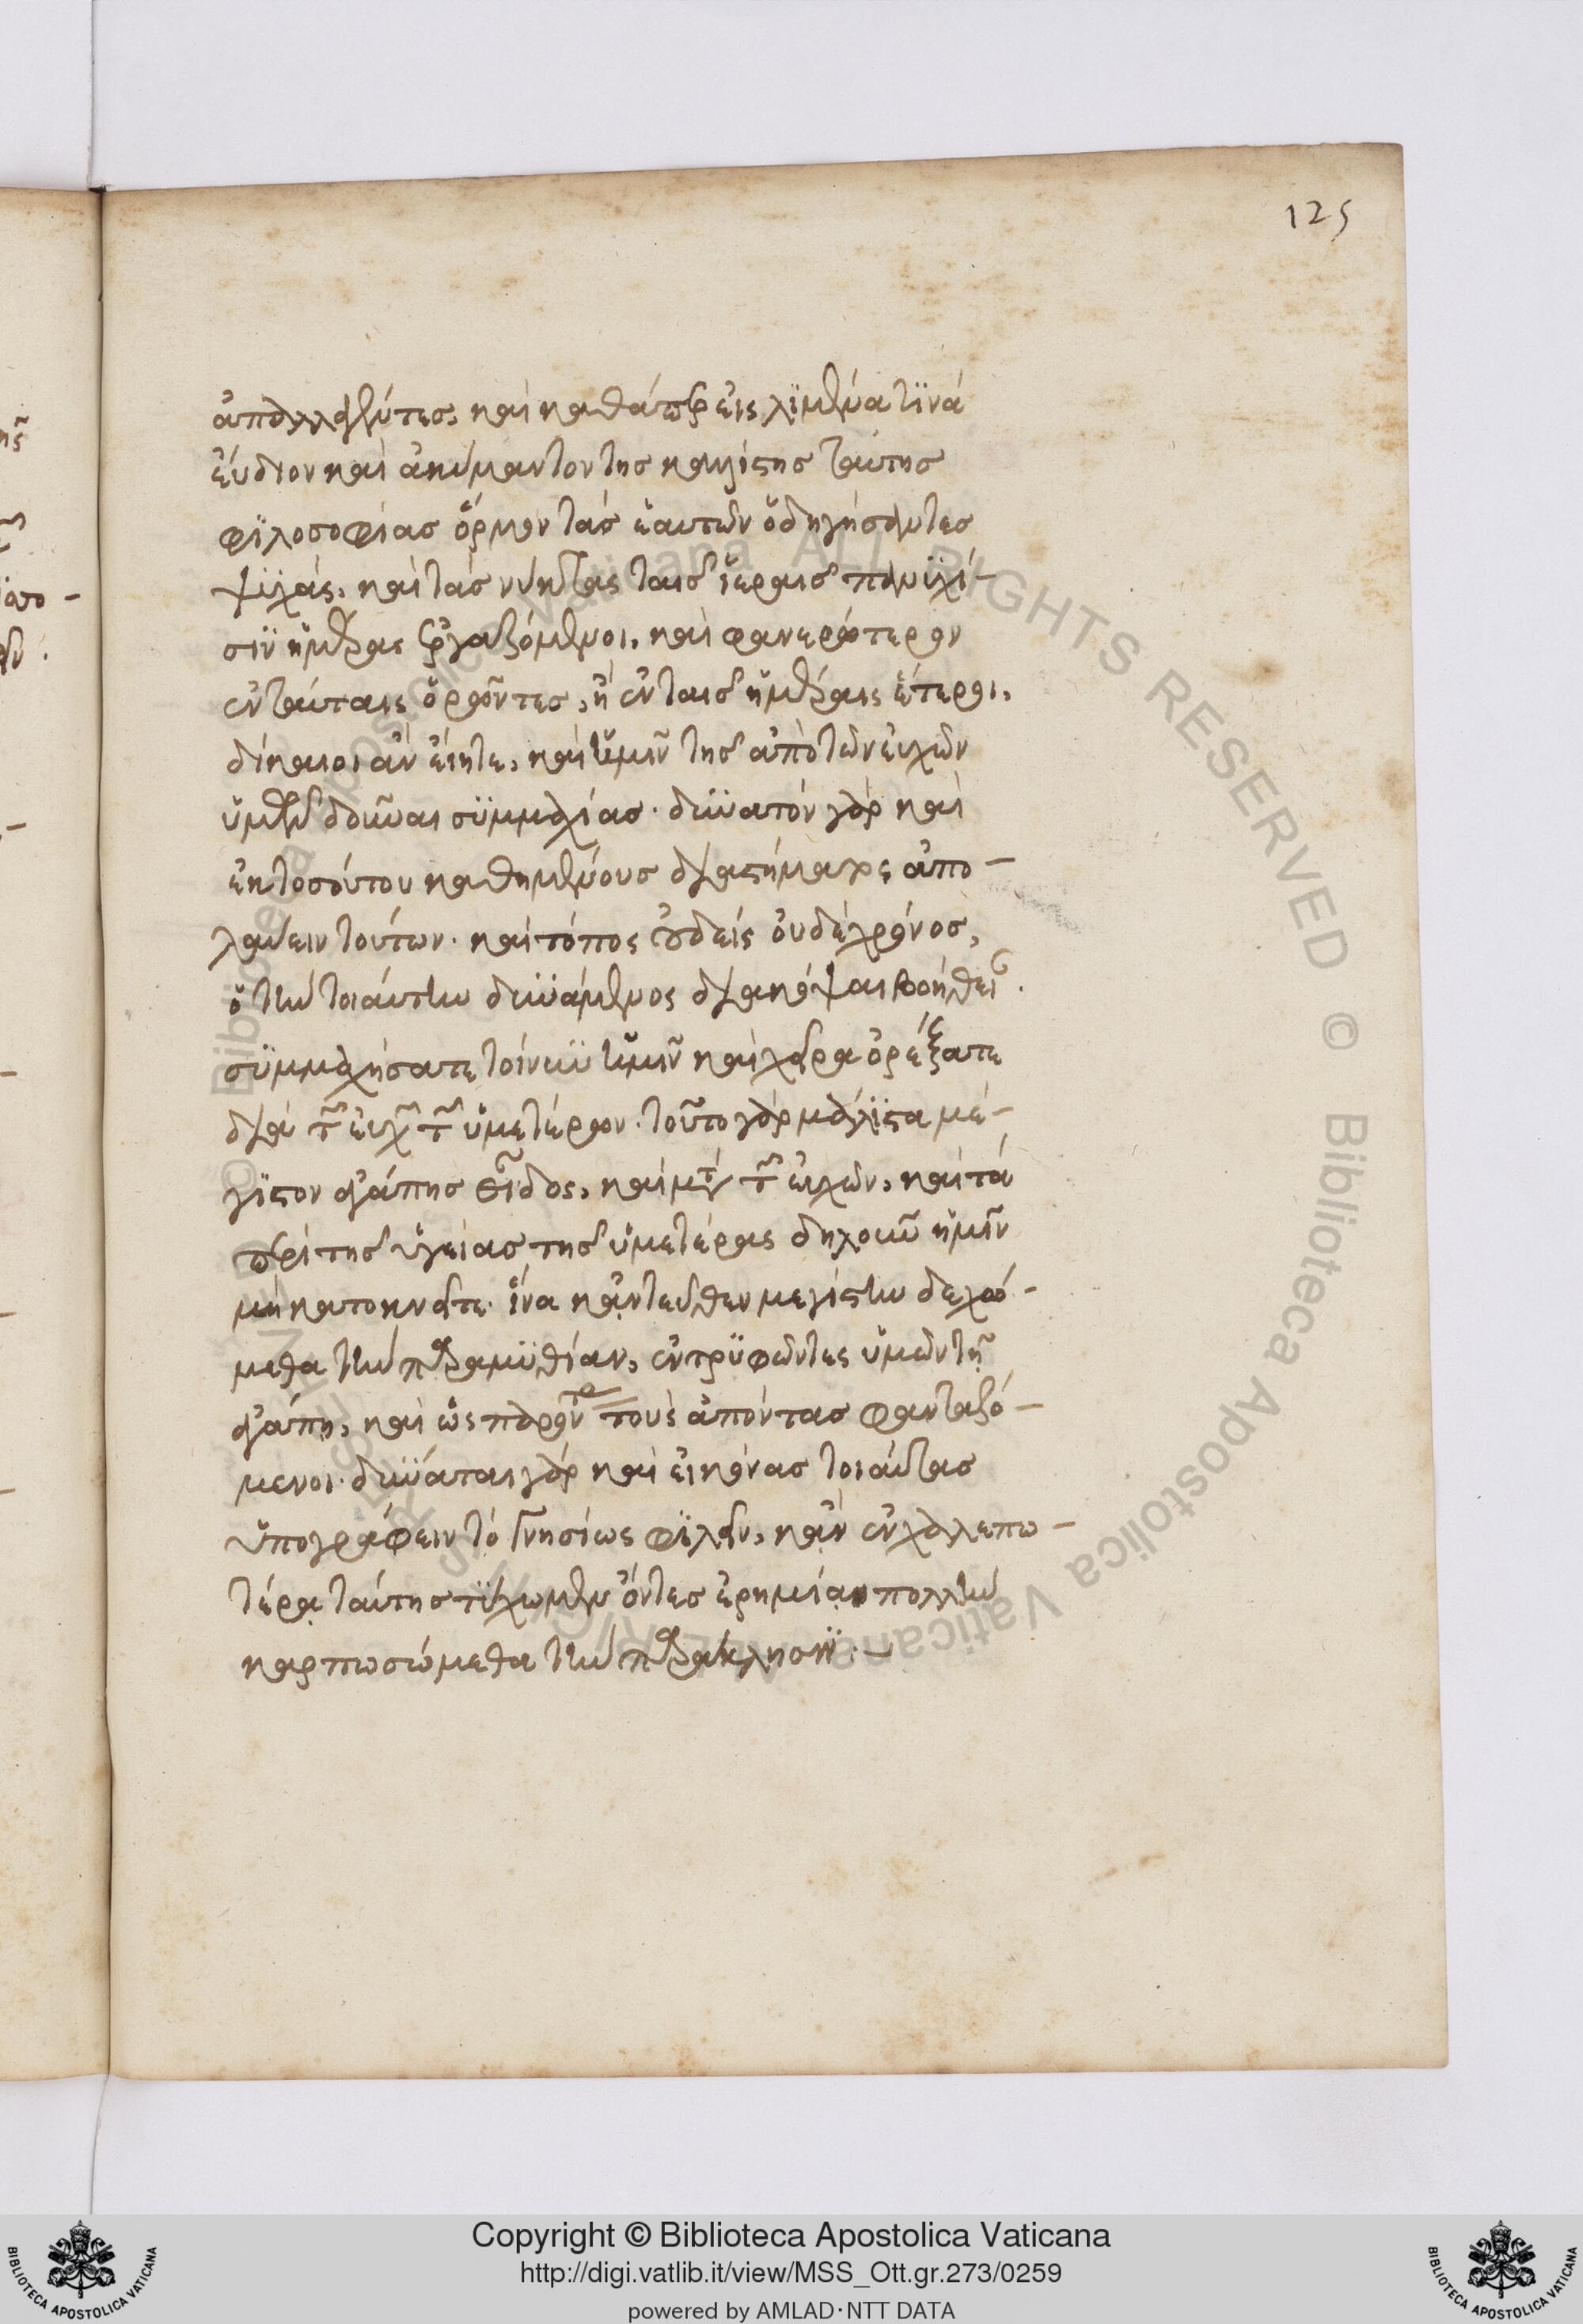 125
ἀπαλλάξαντες, καὶ καθάπερ εἰς λϊμένα τϊνὰ
εὔδιον καὶ ἀκύμαντον της καλλίστης ταύτης
φϊλοσοφίας ὅρμον τὰς ἑαυτῶν ὁδηγήσαντες
ψϋχάς, καὶ τὰς νύκτας ταις ἱεραις παννϋχί-
σϊν ἡμέρας ἐργαζόμενοι, καὶ φανερώτερον
ἐν ταύταις ὁρῶντες, ἢ ἐν ταις ἡμέραις ἕτεροι,
δίκαιοι ἂν εἴητε, καὶ ἡμῖν της ἀπὸ τῶν εὐχῶν
ὑμῶν δοῦναι συμμαχίας. δυνατὸν γὰρ καὶ
ἐκ τοσούτου καθημένους διαστήματος ἀπο-
λαύειν τούτων. καὶ τόπος οὐδεὶς οὐδὲ χρόνος,
ὁ τὴν τοιαύτην δυνάμενος διακόψαι βοήθειαν.
συμμαχήσατε τοίνυν ἡμῖν καὶ χεῖρα ὀρέξατε
διὰ τῶν εὐχῶν τῶν ὑμετέρων. τοῦτο γὰρ μάλϊστα μέ-
γϊστον ἀγάπης εἶδος, καὶ μετὰ τῶν εὐχῶν, καὶ τὰ
περὶ της ὑγείας της ὑμετέρας δηλοῦν ἡμῖν
μὴ κατοκνεῖτε. ἵνα κἀντεῦθεν μεγίστην δεχώ-
μεθα τὴν παραμϋθίαν, ἐντρϋφῶντες ὑμῶν τῇ
ἀγάπῃ, καὶ ὡς παρόντας τοὺς ἀπόντας φανταζό-
μενοι. δύναται γὰρ καὶ εἰκόνας τοιαύτας
ὑπογράφειν τὸ γνησίως φϊλεῖν, κἂν ἐν χαλεπω-
τέρᾳ ταύτης τύχωμεν ὄντες ἐρημίᾳ, πολλὴν
καρπωσώμεθα τὴν παράκλησϊν. -
Copyright © Biblioteca Apostolica Vaticana
http://digi.vatlib.it/view/MSS_Ott.gr.273/0259
powered by AMLAD·NTT DATA